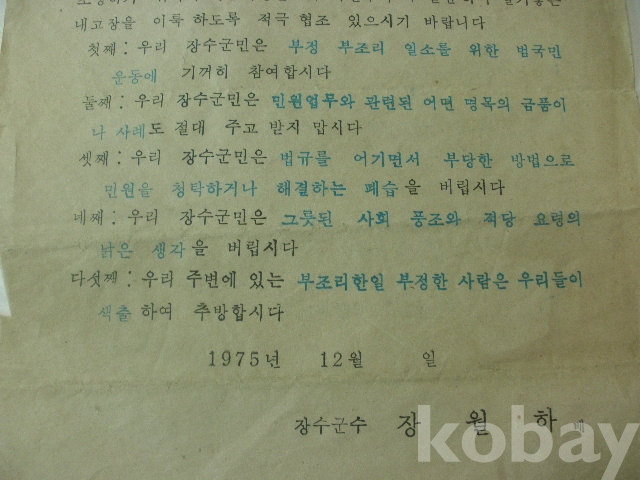 내고장을 이룩 하도록 적극 협조 있으시기 바랍니다
첫째: 우리 장수군민은 부정 부조리 일소를 위한 범국민
운동에 기꺼히 참여합시다
둘째: 우리 장수군민은 민원업무와 관련된 어떤 명목의 금품이
나 사례도 절대 주고 받지 맙시다
셋째: 우리 장수군민은 법규를 어기면서 부당한 방법으로
민원을 청탁하거나 해결하는 폐습을 버립시다
네째: 우리 장수군민은 그릇된 사회 풍조와 적당 요령의
낡은 생각을 버립시다
다섯째: 우리 주변에 있는 부조리한일 부정한 사람은 우리들이
색출하여 추방합시다
1975년 12월 일
장수군수 장 월 하
kobay